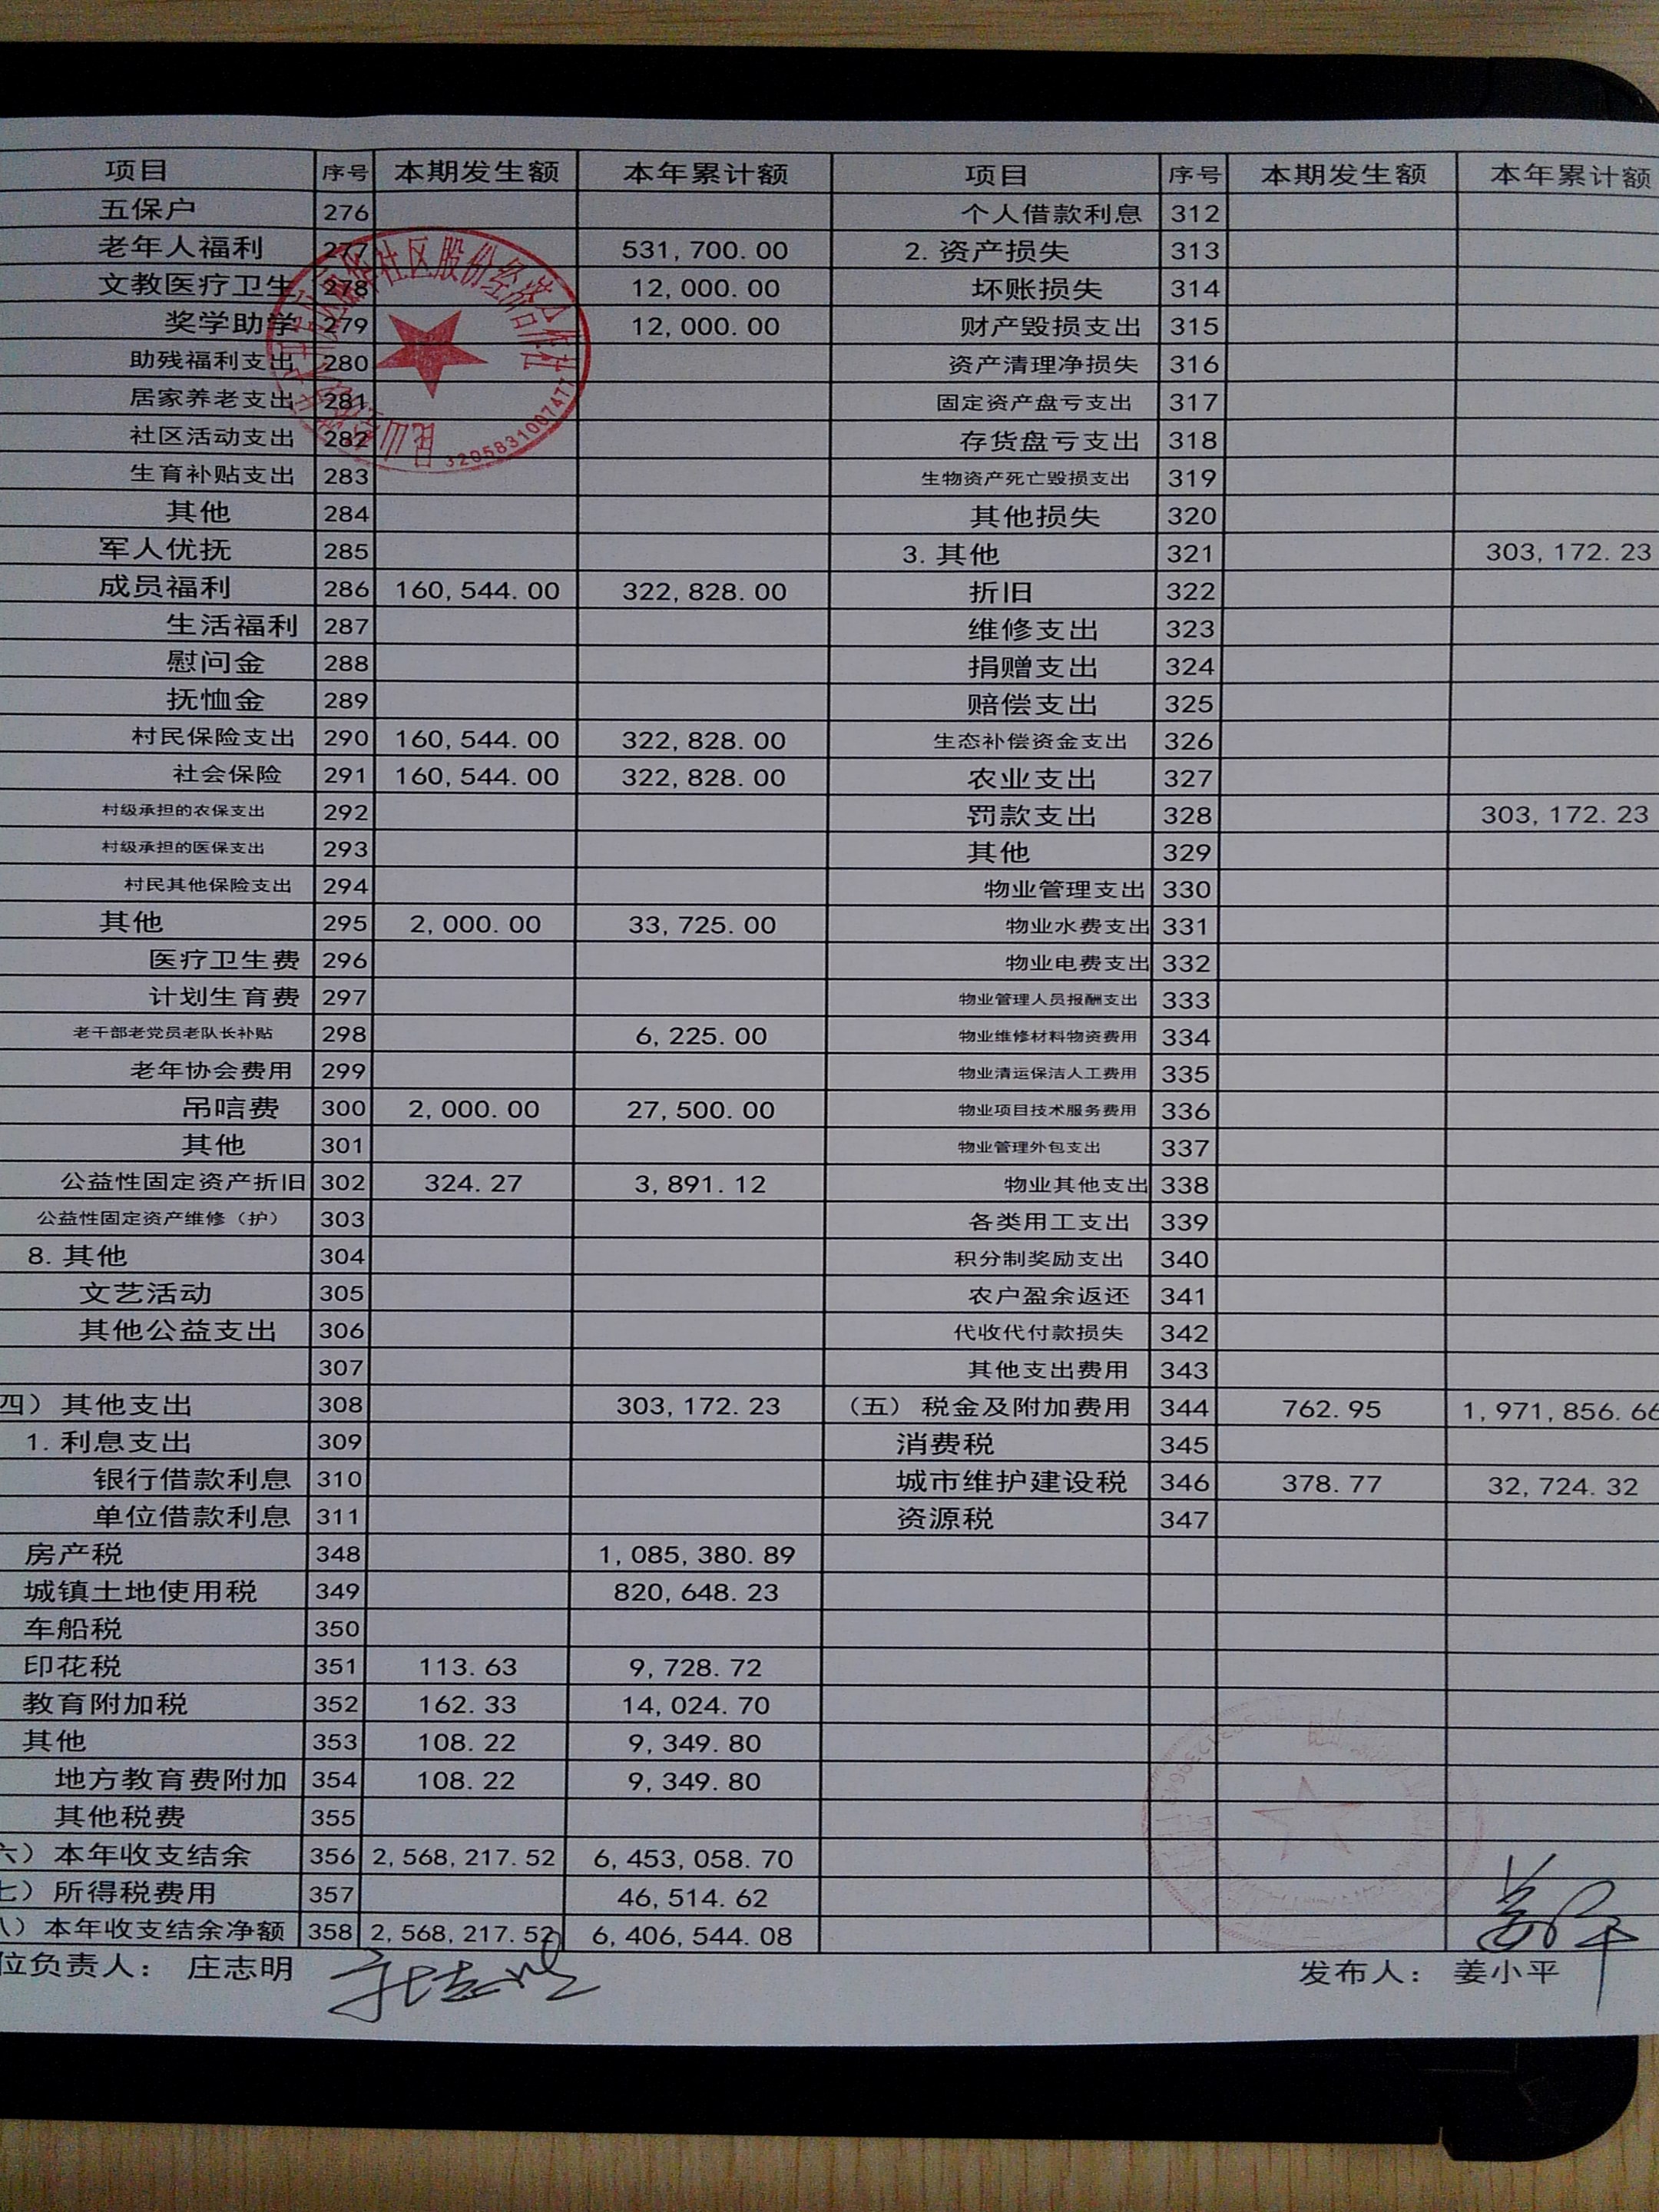 项目 序号 本期发生额 本年累计额 项目 序号 本期发生额 本年累计额
五保户 276 个人借款利息 312
老年人福利 277 531,700.00 2.资产损失 313
文教医疗卫生 278 12,000.00 坏账损失 314
奖学助学 279 12,000.00 财产毁损支出 315
助残福利支出 280 资产清理净损失 316
居家养老支出 281 固定资产盘亏支出 317
社区活动支出 282 存货盘亏支出 318
生育补贴支出 283 生物资产死亡毁损支出 319
其他 284 其他损失 320
军人优抚 285 3.其他 321 303,172.23
成员福利 286 160,544.00 322,828.00 折旧 322
生活福利 287 维修支出 323
慰问金 288 捐赠支出 324
抚恤金 289 赔偿支出 325
村民保险支出 290 160,544.00 322,828.00 生态补偿资金支出 326
社会保险 291 160,544.00 322,828.00 农业支出 327
村级承担的农保支出 292 罚款支出 328 303,172.23
村级承担的医保支出 293 其他 329
村民其他保险支出 294 物业管理支出 330
其他 295 2,000.00 33,725.00 物业水费支出 331
医疗卫生费 296 物业电费支出 332
计划生育费 297 物业管理人员报酬支出 333
老干部老党员老队长补贴 298 6,225.00 物业维修材料物资费用 334
老年协会费用 299 物业清运保洁人工费用 335
吊唁费 300 2,000.00 27,500.00 物业项目技术服务费用 336
其他 301 物业管理外包支出 337
公益性固定资产折旧 302 324.27 3,891.12 物业其他支出 338
公益性固定资产维修（护） 303 各类用工支出 339
8.其他 304 积分制奖励支出 340
文艺活动 305 农户盈余返还 341
其他公益支出 306 代收代付款损失 342
307 其他支出费用 343
四）其他支出 308 303,172.23 （五）税金及附加费用 344 762.95 1,971,856.66
1.利息支出 309 消费税 345
银行借款利息 310 城市维护建设税 346 378.77 32,724.32
单位借款利息 311 资源税 347
房产税 348 1,085,380.89
城镇土地使用税 349 820,648.23
车船税 350
印花税 351 113.63 9,728.72
教育附加税 352 162.33 14,024.70
其他 353 108.22 9,349.80
地方教育费附加 354 108.22 9,349.80
其他税费 355
六）本年收支结余 356 2,568,217.52 6,453,058.70
七）所得税费用 357 46,514.62
八）本年收支结余净额 358 2,568,217.52 6,406,544.08
位负责人： 庄志明 发布人： 姜小平
社区股份经济合作社
3205831007477